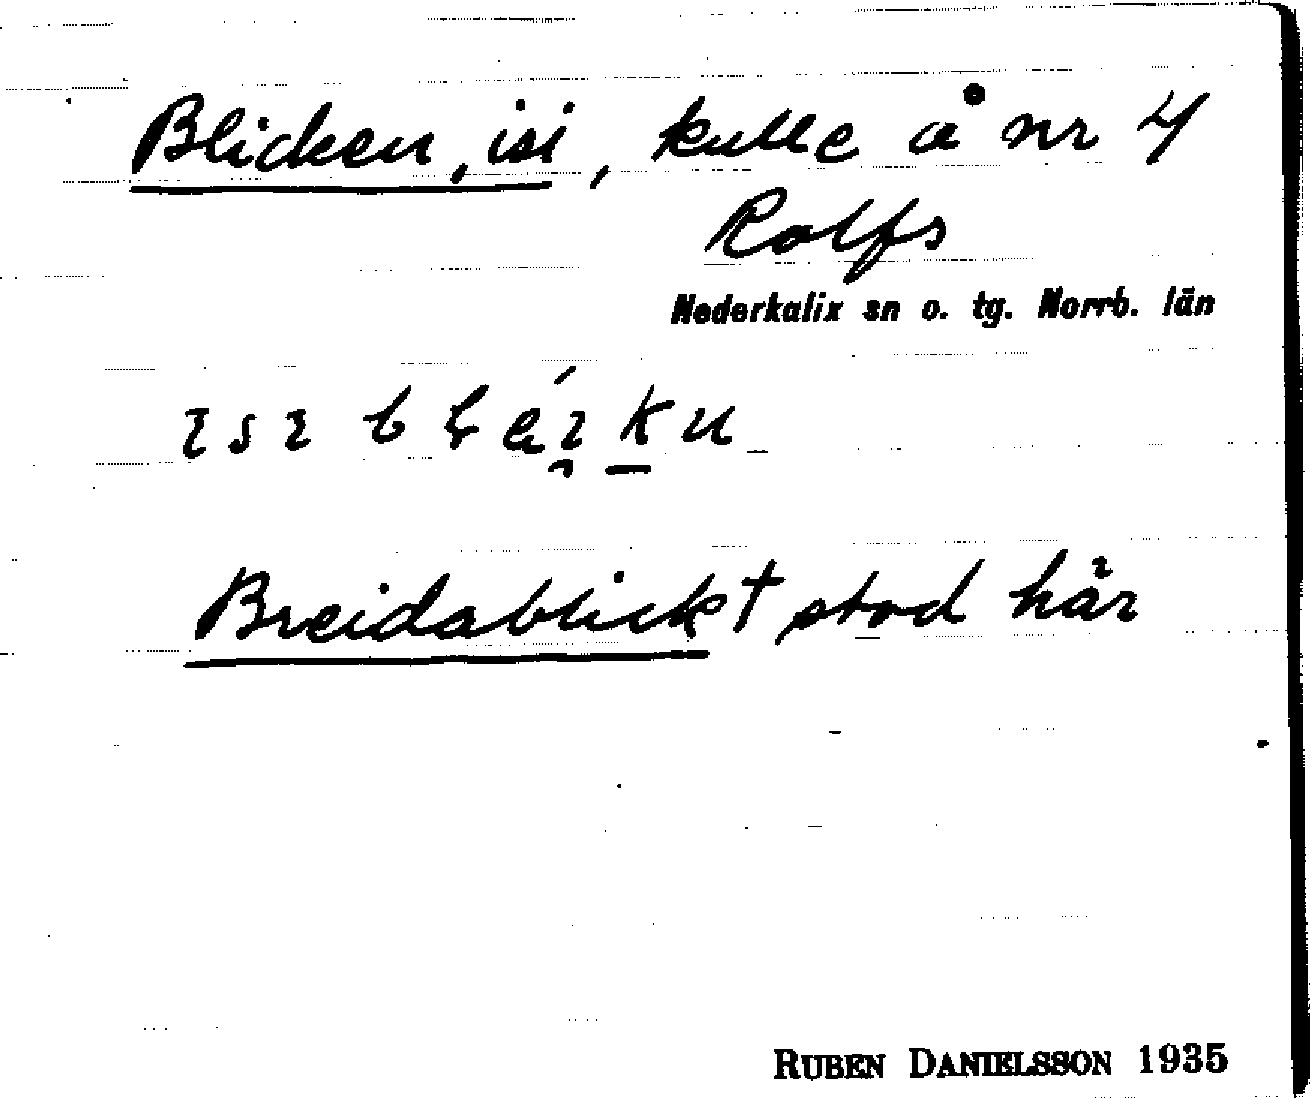 Blicken, isi, kulle å nr 4
Rolfs
Nederkalix sn o. tg. Norrb. län
Breidablick† stod här
RUBEN DANIELSSON 1935